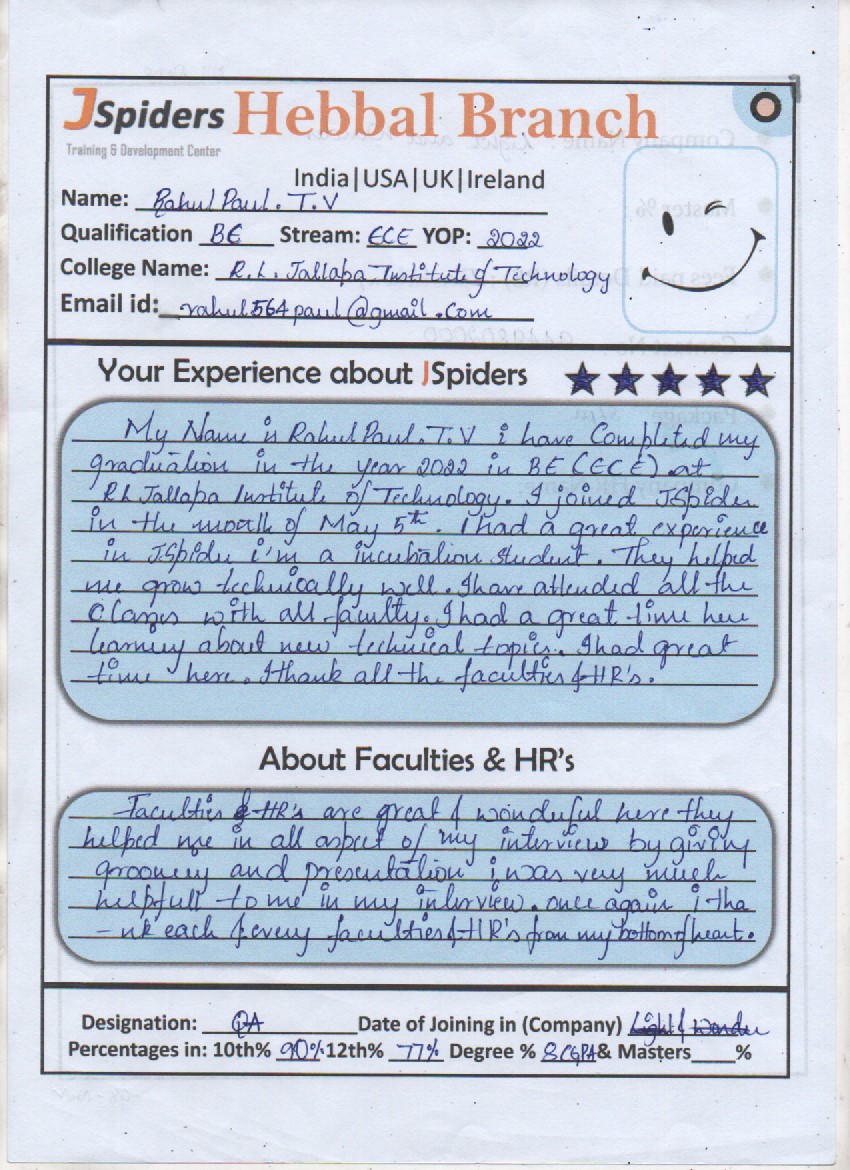 JSpiders Hebbal Branch
Training & Development Center
India|USA|UK|Ireland
Name: Rahul Paul. T.V
Qualification BE Stream: ECE YOP: 2022
College Name: R.L. Jallapa Institute of Technology
Email id: rahul564paul@gmail.com
Your Experience about JSpiders
My Name is Rahul Paul. T.V i have Completed my
graduation in the year 2022 in BE (ECE) at
RL Jallapa Institute of Technology. I joined JSpider
in the month of May 5th. I had a great experience
in JSpider i'm a incubation student. They helped
me grow technically well. I have attended all the
Classes with all faculty. I had a great time here
learning about new technical topics. I had great
time here. I thank all the faculties & HR's.
About Faculties & HR's
Faculties & HR's are great & wonderful here they
helped me in all aspect of my interview by giving
groomery and presentation i was very much
helpfull to me in my interview. once again i tha
-nk each & every faculties & HR's from my bottom of heart.
Designation: QA Date of Joining in (Company) Light & Wonder
Percentages in: 10th% 90% 12th% 77% Degree % 8 CGPA & Masters____%